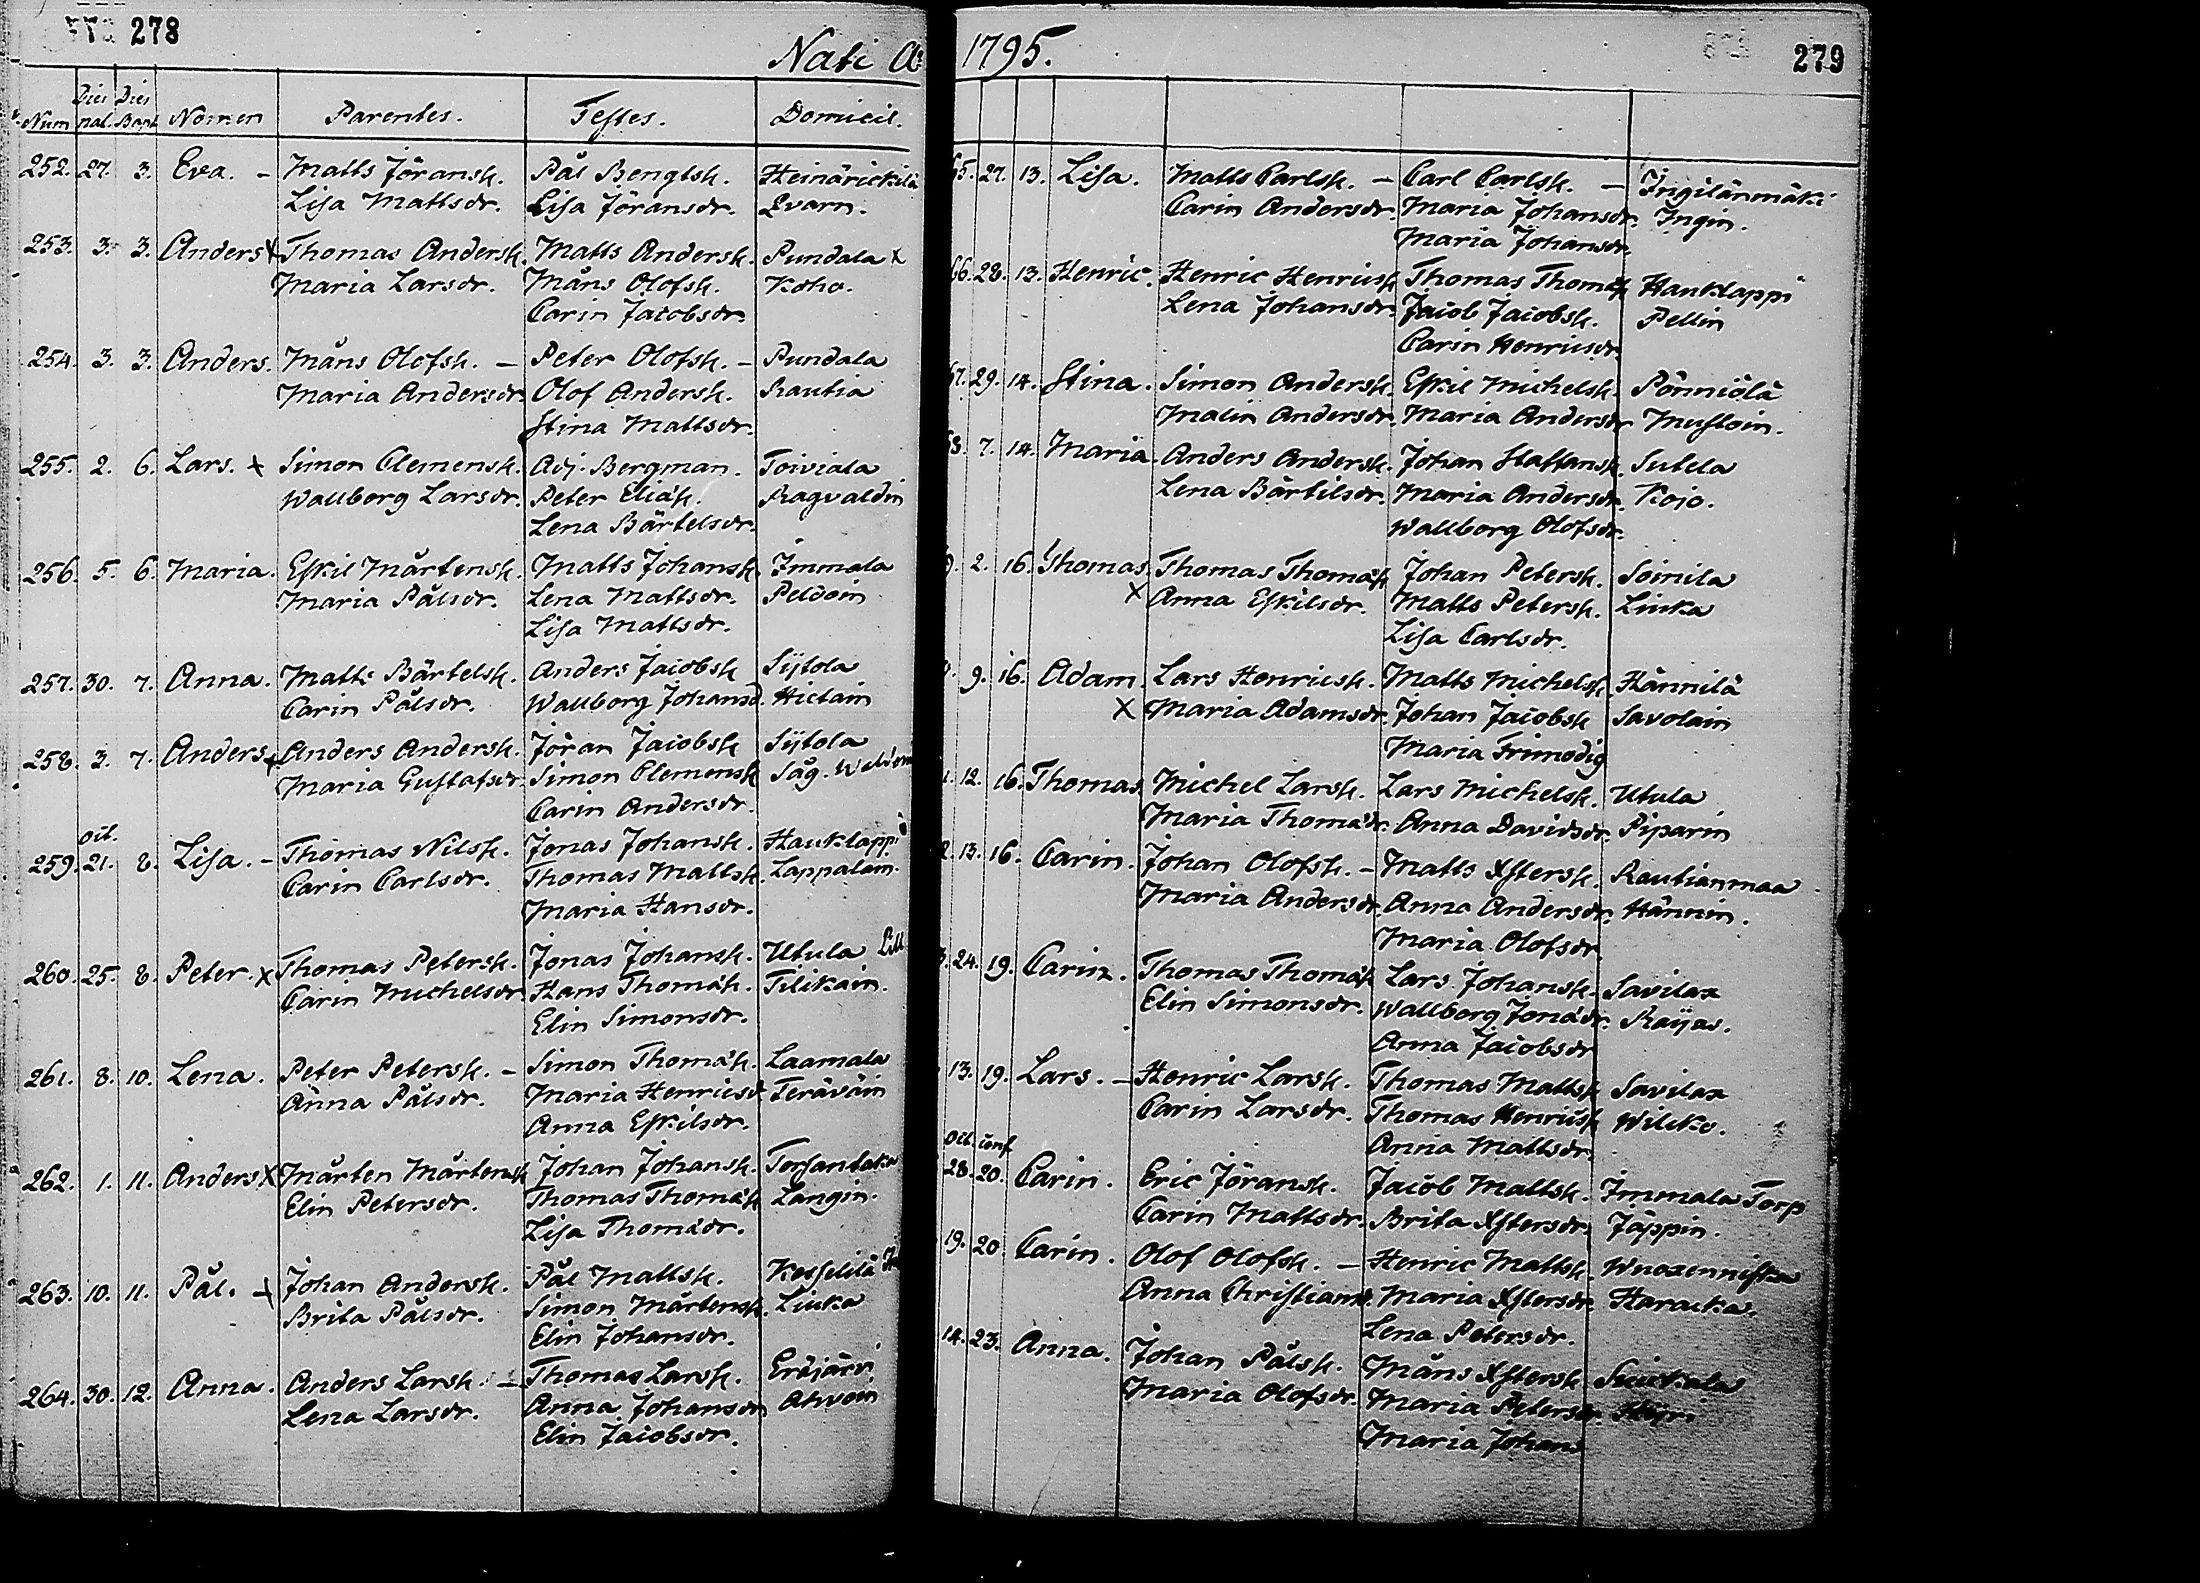 278
Nati Ao
Num Dies nat. Dies Bapt. Nomen Parentes. Testes. Domicil.
252. 27. 3. Eva. - Matts Jöransk. Pål Bengtsk. Heinärickilä
Lisa Mattsdr. Lisa Jöransdr. Qvarn.
253. 3. 3. Anders x Thomas Andersk. Matts Andersk. Pundala x
Maria Larsdr. Måns Olofsk. Koho.
Carin Jacobsdr.
254. 3. 3. Anders. Måns Olofsk. - Peter Olofsk. - Pundala
Maria Andersdr. Olof Andersk. Rautia
Stina Mattsdr.
255. 2. 6. Lars. x Simon Clemensk. Adj. Bergman. Toiviala
Wallborg Larsdr. Peter Eliæk. Ragvaldin
Lena Bärtelsdr.
256. 5. 6. Maria. Eskil Mårtensk. Matts Johansk. Immala
Maria Pålsdr. Lena Mattsdr. Peldoin
Lisa Mattsdr.
257. 30. 7. Anna. Matts Bärtelsk. Anders Jacobsk Sijtola
Carin Pålsdr. Wallborg Johansd. Hietain
258. 3. 7. Anders x Anders Andersk. Jöran Jacobsk Sijtola
Maria Gustafsdr. Simon Clemensk Såg.
Carin Andersdr.
oct.
259. 21. 8. Lisa. - Thomas Nilsk. Jonas Johansk. Hauklappi
Carin Carlsdr. Thomas Mattsk. Lappalain.
Maria Hansdr.
260. 25. 8. Peter. x Thomas Petersk. Jonas Johansk. Utula Lill
Carin Michelsdr. Hans Thomæk. Tilikain.
Elin Simonsdr.
261. 8. 10. Lena. Peter Petersk. - Simon Thomæk. Laamala
Anna Pålsdr. Maria Henricsd. Terävöin
Anna Eskilsdr.
262. 1. 11. Anders x Mårten Mårtensk Johan Johansk. Torsantaka
Elin Petersdr. Thomas Thomæk Langin.
Lisa Thomædr.
263. 10. 11. Pål. x Johan Andersk. Pål Mattsk. Kesselilä
Brita Pålsdr. Simon Mårtensk. Liuka
Elin Johansdr.
264. 30. 12. Anna. Anders Larsk. - Thomas Larsk. Eräjärvi
Lena Larsdr. Anna Johansdr Ahvoin
Elin Jacobsdr.
1795.
279
65. 27. 13. Lisa. Matts Carlsk. - Carl Carlsk. - Ingilänmäki
Carin Andersdr. Maria Johansdr. Ingin.
Maria Johansdr.
66. 28. 13. Henric. Henric Henricsk Thomas Thomæk Hauklappi
Lena Johansdr. Jacob Jacobsk. Pellin
Carin Henricsdr.
67. 29. 14. Stina. Simon Andersk. Eskil Michelsk. Pönniälä
Malin Andersdr. Maria Andersdr Mustoin.
68. 7. 14. Maria. Anders Andersk. Johan Staffansk Sutela
Lena Bärtilsdr. Maria Andersdr. Kojo.
Wallborg Olofsdr.
9. 2. 16. Thomas. Thomas Thomæk Johan Petersk. Soinila
x Anna Eskilsdr. Matts Petersk. Liuka
Lisa Carlsdr.
9. 16. Adam. Lars Henricsk. Matts Michelsk. Hännilä
x Maria Adamsdr. Johan Jacobsk Savolain
Maria Frimodig
1. 12. 16. Thomas. Michel Larsk. Lars Michelsk. Utula
Maria Thomædr. Anna Davidsdr. Piparin
2. 13. 16. Carin. Johan Olofsk. - Matts Xstersk. Rautianmaa
Maria Andersdr. Anna Andersdr. Hännin.
Maria Olofsdr.
3. 24. 19. Carin. Thomas Thomæk Lars Johansk. Savilax
Elin Simonsdr. Wallborg Jonædr. Raijas.
Anna Jacobsdr
13. 19. Lars. - Henric Larsk. Thomas Mattsk Savilax
Carin Larsdr. Thomas Henricsk Wilcko.
Anna Mattsdr.
oct. conf
28. 20. Carin. Eric Jöransk. Jacob Mattsk. Immala Torp
Carin Mattsdr. Brita Xstersdr. Jäppin.
19. 20 Carin. Olof Olofsk. - Henric Mattsk. Wuoxenniska
Anna Christiansd. Maria Xstersdr. Haracka.
Lena Petersdr.
14. 23. Anna. Johan Pålsk. Måns Xstersk.
Maria Olofsdr. Maria Petersdr.
Maria Johans